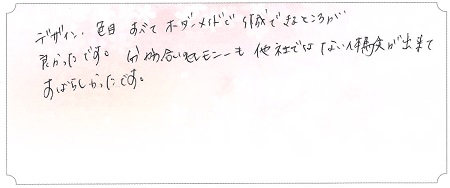 デザイン、色目 すべて オーダーメイドで 作成できるところが
良かったです。 セレモニーも 他社では ない体験が出来て
すばらしかったです。